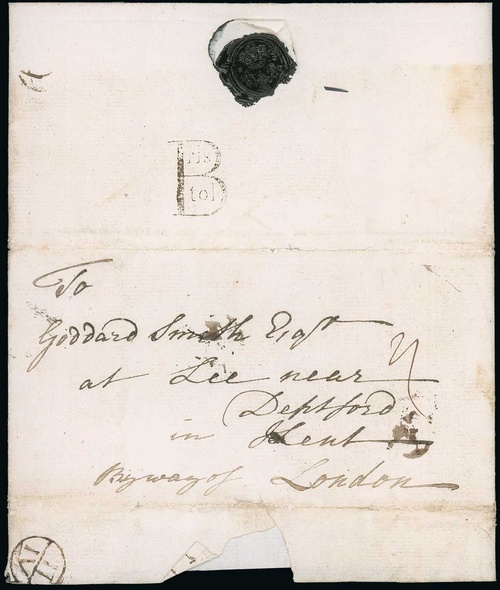 B
ris
tol
To
Goddard Smith Esqr
at Lee near
Deptford
in Kent
By way of London